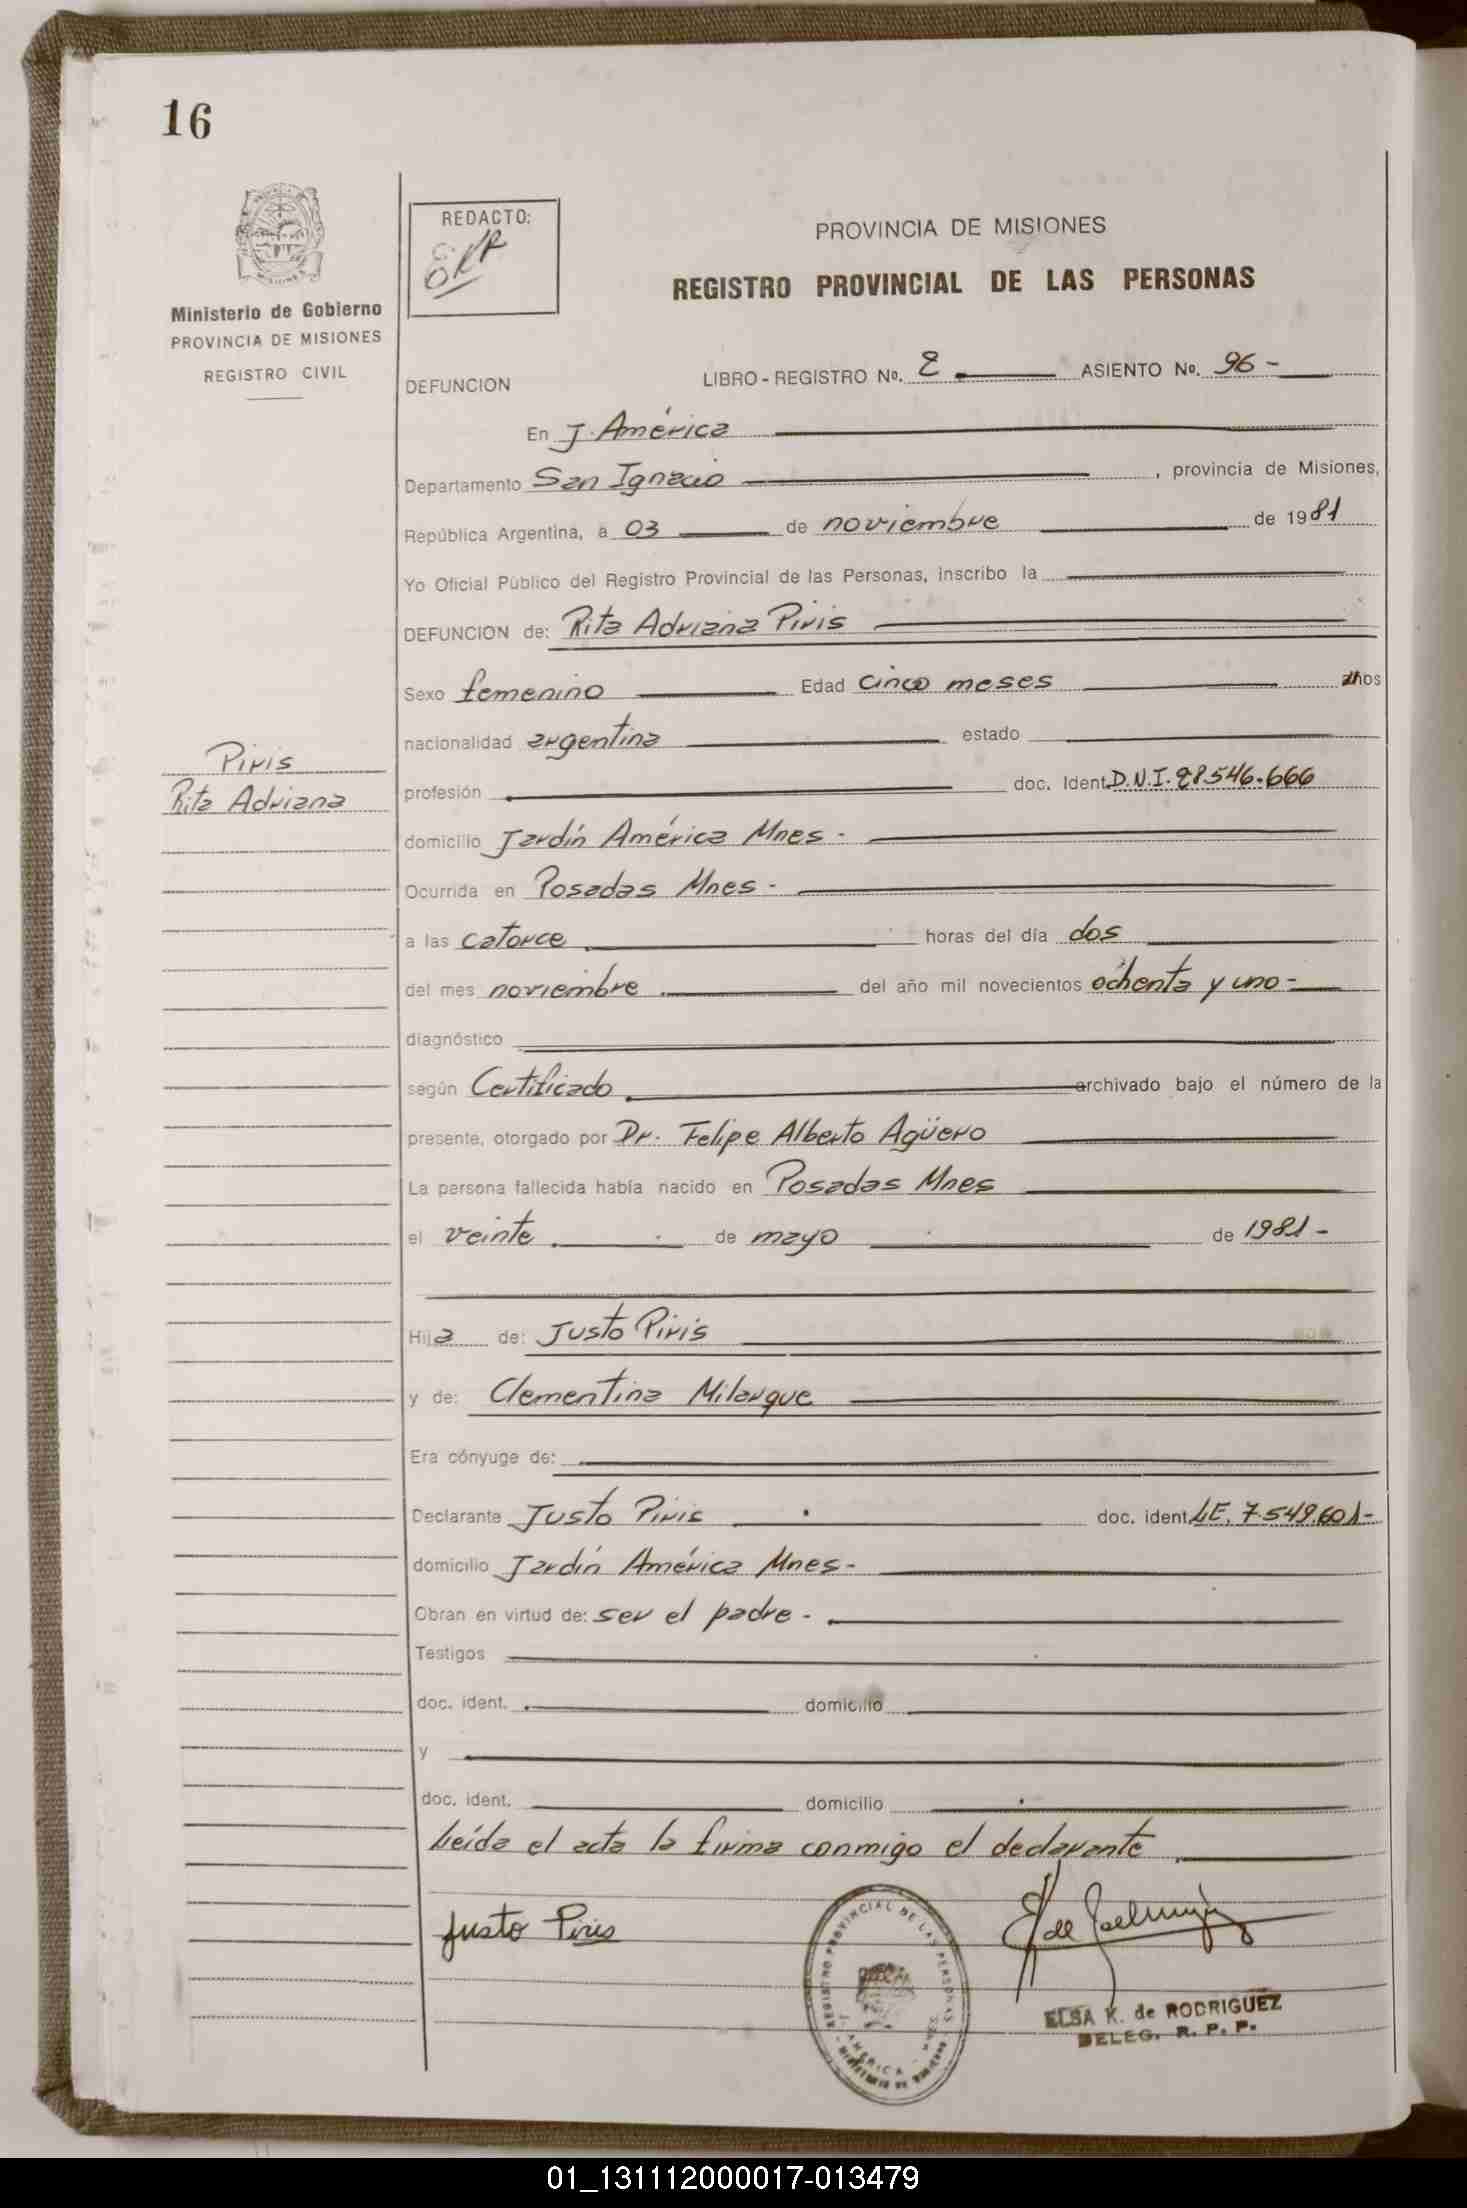 16
REDACTO:
EKR
Ministerio de Gobierno
PROVINCIA DE MISIONES
REGISTRO CIVIL
PROVINCIA DE MISIONES
REGISTRO PROVINCIAL DE LAS PERSONAS
DEFUNCION LIBRO - REGISTRO No. 2 ASIENTO No. 96 -
En J. América
Departamento San Ignacio , provincia de Misiones,
República Argentina, a 03 de noviembre de 1981
Yo Oficial Público del Registro Provincial de las Personas, inscribo la
DEFUNCION de: Rita Adriana Piris
Sexo femenino Edad cinco meses años
nacionalidad argentina estado
Piris
Rita Adriana
profesión doc. Ident. D.N.I. 28.546.666
domicilio Jardín América Mnes -
Ocurrida en Posadas Mnes -
a las catorce horas del día dos
del mes noviembre del año mil novecientos ochenta y uno -
diagnóstico
según Certificado archivado bajo el número de la
presente, otorgado por Dr. Felipe Alberto Agüero
La persona fallecida había nacido en Posadas Mnes
el veinte de mayo de 1981 -
Hija de: Justo Piris
y de: Clementina Milarque
Era cónyuge de:
Declarante Justo Piris doc. ident. LE. 7.549.601 -
domicilio Jardín América Mnes -
Obran en virtud de: ser el padre -
Testigos
doc. ident. domicilio
y
doc. ident. domicilio
Leída el acta la firma conmigo el declarante
Justo Piris
REGISTRO PROVINCIAL DE LAS PERSONAS
AMERICA
ELSA K. de RODRIGUEZ
DELEG. R. P. P.
01_131112000017-013479